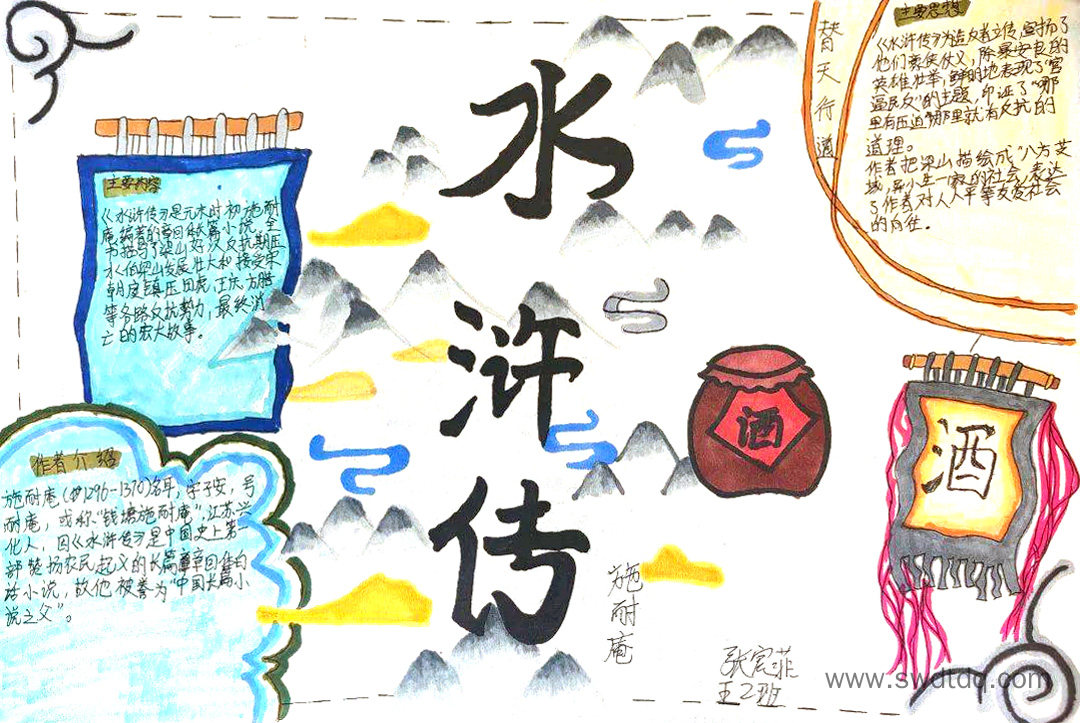 水
浒
传
替天行道
主要思想
《水浒传》为造反者立传，宣扬了
他们行侠仗义，除暴安良的
英雄壮举，鲜明地表现了"官
逼民反"的主题，印证了"哪
里有压迫哪里就有反抗"的
道理。
作者把梁山描绘成"八方
域，异小生一家的社会，表达
了作者对人人平等友爱社会
的向往。
主要内容
《水浒传》是元末明初施耐
庵编著的章回体长篇小说。全
书描写了梁山好汉反抗欺压
水泊梁山发展壮大和接受宋
朝
镇压田虎、王庆、方腊
等各路反抗势力，最终消
亡的宏大故事。
作者介绍
施耐庵(约1296-1370)名耳，字子安，号
耐庵，或称"钱塘施耐庵"，江苏兴
化人，因《水浒传》是中国史上第一
部赞扬农民起义的长篇章回体白
话小说，故他被誉为"中国长篇小
说之父"。
酒
酒
施耐庵
张宾菲
www.swdtdq.com